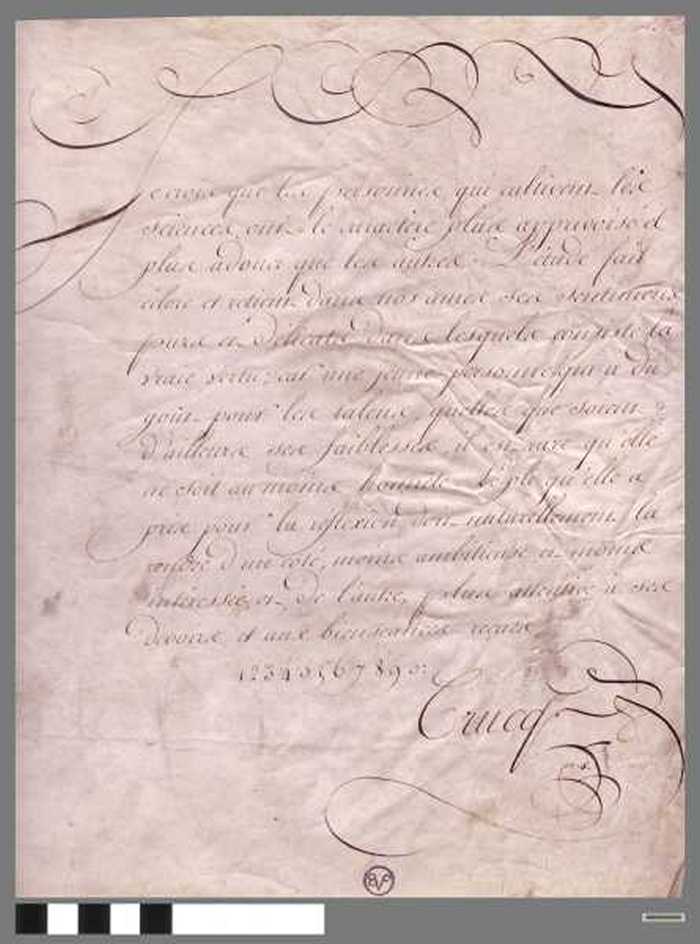 Je crois que les personnes qui cultivent les
sciences, ont le caractere plus apprivoisé et
plus adouci que les autres. L'étude fait
éclore et retient dans nos ames ses sentimens
purs et délicats dans lesquels consiste la
vraie vertu: car une jeune personne qui a du
goût pour les talens, quelles que soient
d'ailleurs ses faiblesses, il est rare qu'elle
ne soit au moins honnete. le pli qu'elle a
pris pour la réflexion doit naturellement la
rendre d'un coté, moins ambitieuse et moins
intéressée, et de l'autre, plus attentive à ses
devoirs et aux bienséances reçues
Crucq